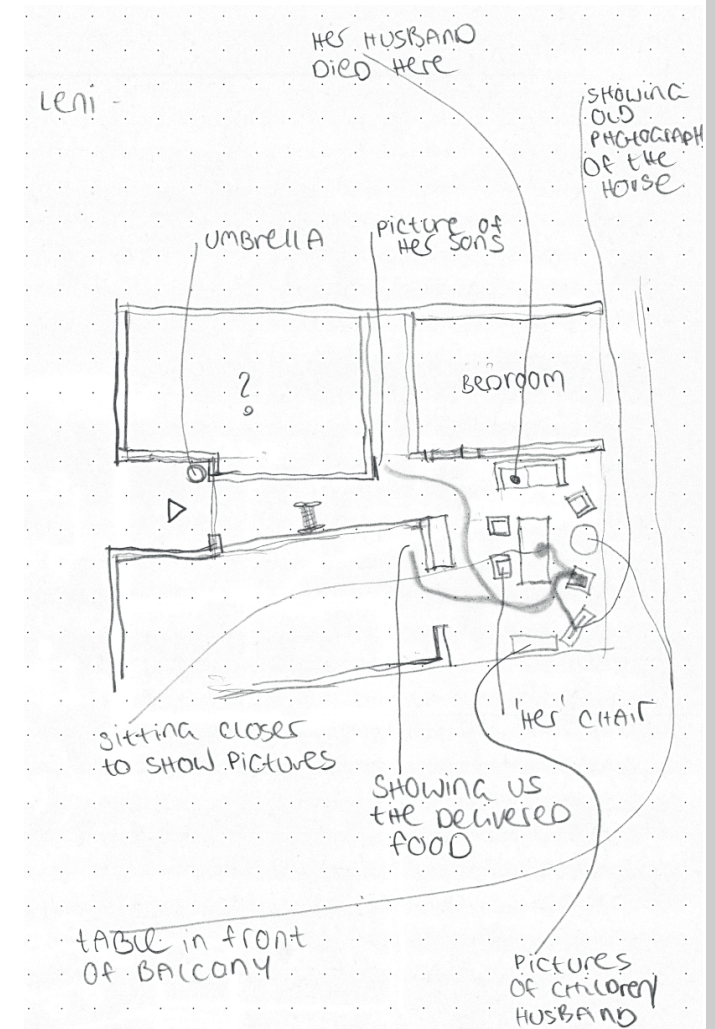 Her HUSBAND
DIED Here
Leni -
SHOWING
OLD
PHOTOGRAPH
OF the
HOUSE
UMBRELLA
picture of
Her SONS
?
BEDROOM
'Her' CHAIR
SITTING CLOSER
to SHOW PICTURES
SHOWING US
tHE DELIVERED
FOOD
tABLE in front
OF BALCONY
PICTURES
OF CHILDREN/
HUSBAND